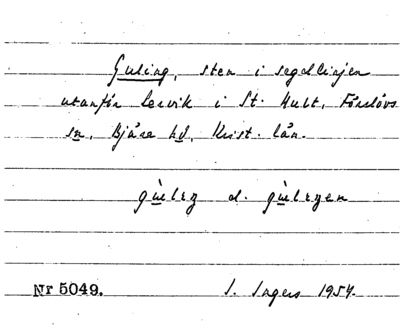 Guling, sten i segellinjen
utanför Lervik i St. Hult, Förslövs
sn, Bjäre hd, Krist. län.
d.
Nr 5049. S. Ingers 1954.